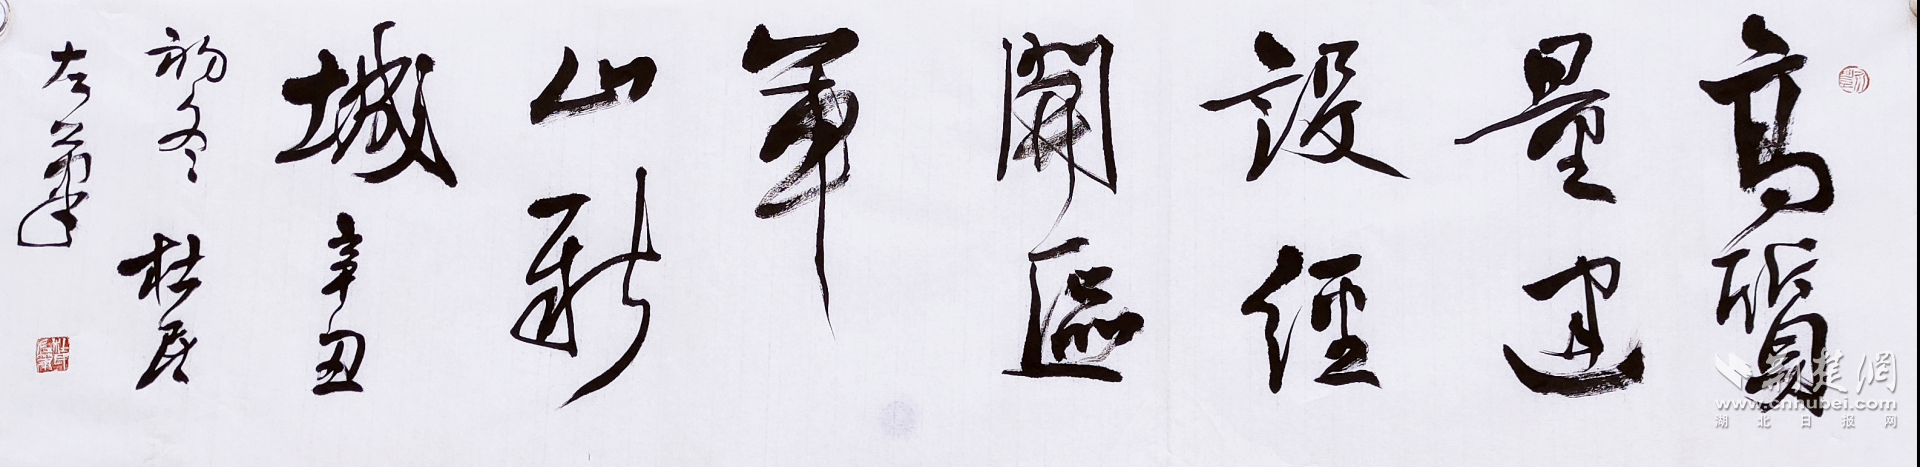 高質
量建
設經
開區
軍
山新
城 辛丑
初冬 杜居
左筆
荆楚網
www.cnhubei.com
湖北日报网